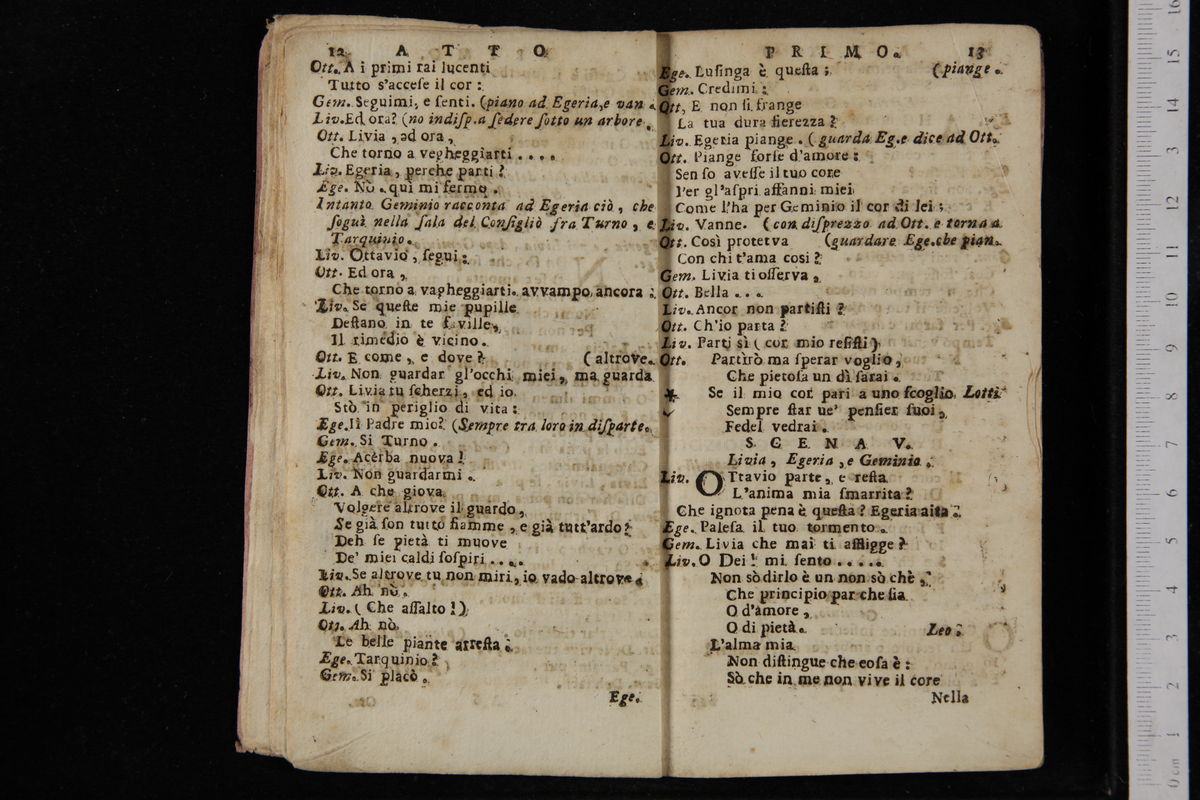 12 A T T O
Ott. A i primi rai lucenti
Tutto s'accese il cor :
Gem. Seguimi, e senti. (piano ad Egeria, e van.
Liv. Ed ora? (no indisp. a sedere sotto un arbore.
Ott. Livia, ad ora,
Che torno a vegheggiarti....
Liv. Egeria, perche parti?
Ege. Nò. qui mi fermo.
Intanto Geminio racconta ad Egeria ciò, che
seguì nella sala del Consigliò fra Turno, e
Tarquinio.
Liv. Ottavio, segui:
Ott. Ed ora,
Che torno a vagheggiarti. avvampo ancora:
Liv. Se queste mie pupille
Destano in te faville,
Il rimedio è vicino.
Ott. E come, e dove? (altrove.
Liv. Non guardar gl'occhi miei, ma guarda
Ott. Livia tu scherzi, ed io
Stò in periglio di vita:
Ege. Il Padre mio? (Sempre tra loro in disparte.
Gem. Si Turno.
Ege. Acerba nuova!
Liv. Non guardarmi.
Ott. A che giova
Volgere altrove il guardo,
Se già son tutto fiamme, e già tutt'ardo?
Deh se pietà ti muove
De' miei caldi sospiri....
Liv. Se altrove tu non miri, io vado altrove.
Ott. Ah nò.
Liv. (Che assalto!)
Ott. Ah nò
Le belle piante arresta;
Ege. Tarquinio?
Gem. Si placò.
Ege.
P R I M O. 13
Ege. Lusinga è questa; (piange.
Gem. Credimi:
Ott. E non si frange
La tua dura fierezza?
Liv. Egeria piange. (guarda Eg. e dice ad Ott.
Ott. Piange forse d'amore:
Sen so avesse il tuo core
Per gl'aspri affanni miei
Come l'ha per Geminio il cor di lei;
Liv. Vanne. (con disprezzo ad Ott. e torna a
Ott. Così proterva (guardare Ege. che pian.
Con chi t'ama cosi?
Gem. Livia ti osserva,
Ott. Bella...
Liv. Ancor non partisti?
Ott. Ch'io parta?
Liv. Parti sì (cor mio resisti)
Ott. Partirò ma sperar voglio,
Che pietosa un dì sarai.
* Se il mio cor pari a uno scoglio Lotti
Sempre star ne' pensier suoi,
Fedel vedrai.
S C E N A V.
Livia, Egeria, e Geminio.
Liv. OTtavio parte, e resta
L'anima mia smarrita?
Che ignota pena è questa? Egeria aita.
Ege. Palesa il tuo tormento.
Gem. Livia che mai ti affligge?
Liv. O Dei! mi sento.....
Non sò dirlo è un non sò chè,
Che principio par che sia
O d'amore,
O di pietà. Leo:
L'alma mia
Non distingue che cosa è:
Sò che in me non vive il core
Nella